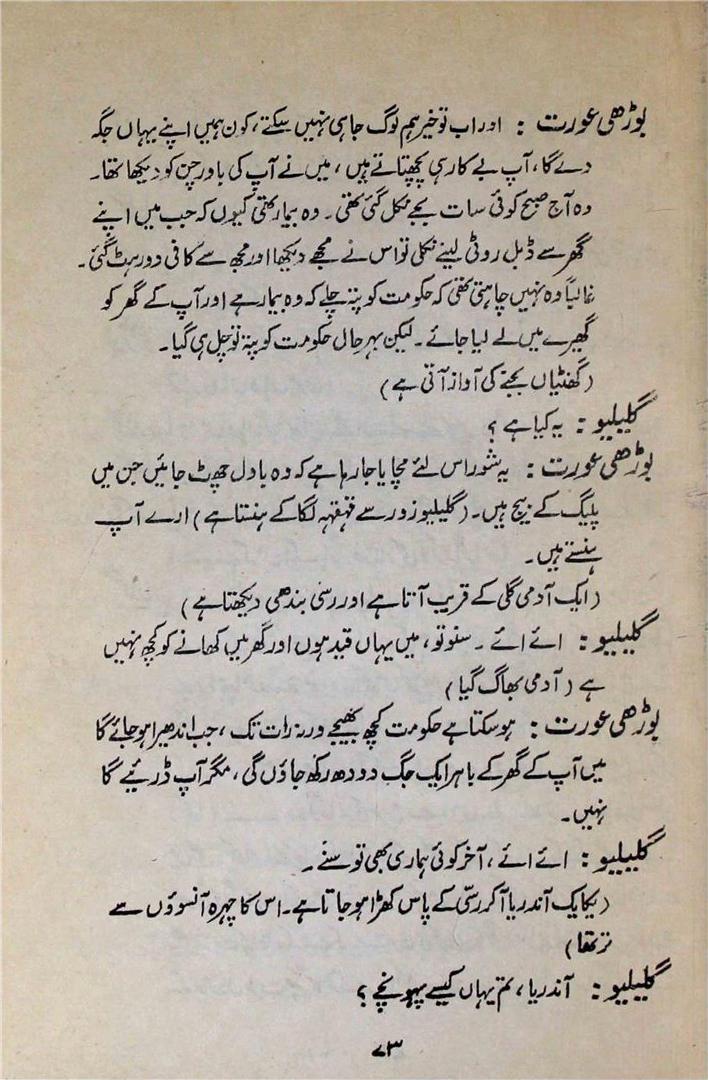 بوڑھی عورت : اور اب تو خیر ہم لوگ جا ہی نہیں سکتے، کون ہمیں اپنے یہاں جگہ
دے گا، آپ بے کار ہی پچھتاتے ہیں، میں نے آپ کی باورچن کو دیکھا تھا۔
وہ آج صبح کوئی سات بجے نکل گئی تھی۔ وہ بیمار تھی کیوں کہ جب میں اپنے
گھر سے ڈبل روٹی لینے نکلی تو اس نے مجھے دیکھا اور مجھ سے کافی دور ہٹ گئی۔
غالباً وہ نہیں چاہتی تھی کہ حکومت کو پتہ چلے کہ وہ بیمار ہے اور آپ کے گھر کو
گھیرے میں لے لیا جائے۔ لیکن بہر حال حکومت کو پتہ تو چل ہی گیا۔
(گھنٹیاں بجنے کی آواز آتی ہے)
گلیلیو : یہ کیا ہے ؟
بوڑھی عورت : یہ شور اس لئے مچایا جا رہا ہے کہ وہ بادل چھٹ جائیں جن میں
پلیگ کے بیج ہیں۔ (گلیلیو زور سے قہقہہ لگا کے ہنستا ہے) ارے آپ
ہنستے ہیں۔
(ایک آدمی گلی کے قریب آتا ہے اور رسی بندھی دیکھتا ہے)
گلیلیو : اے اے ۔ سنو تو، میں یہاں قید ہوں اور گھر میں کھانے کو کچھ نہیں
ہے (آدمی بھاگ گیا)
بوڑھی عورت : ہو سکتا ہے حکومت کچھ بھیجے ورنہ رات تک، جب اندھیرا ہو جائے گا
میں آپ کے گھر کے باہر ایک جگ دودھ رکھ جاؤں گی، مگر آپ ڈرئیے گا
نہیں۔
گلیلیو : اے اے، آخر کوئی ہماری بھی تو سنے ۔
(یکایک آندریا آ کر رسّی کے پاس کھڑا ہو جاتا ہے۔ اس کا چہرہ آنسوؤں سے
تر تھا)
گلیلیو : آندریا، تم یہاں کیسے پہونچے ؟
۷۳